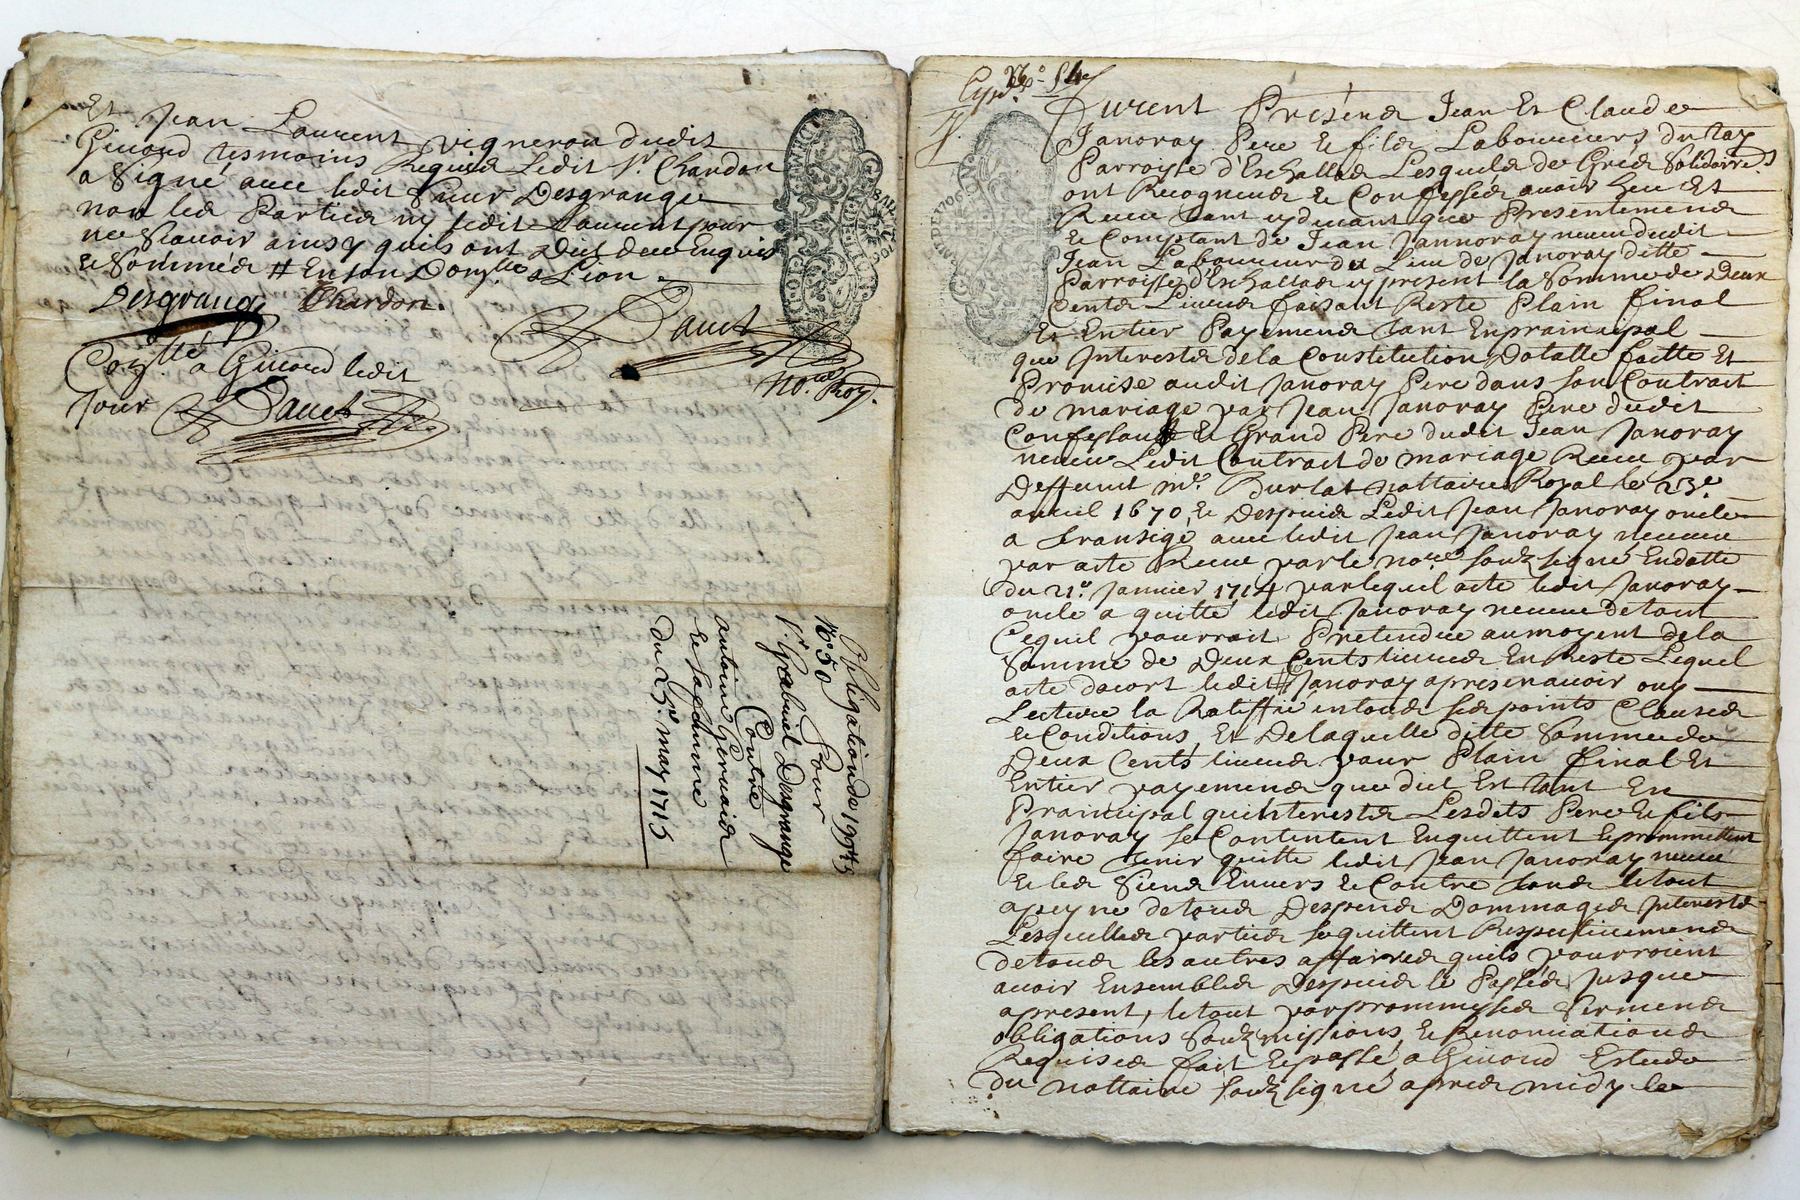 Et Jean Laurent vigneron dudit
Givord tesmoins Requis Ledit Sr. Chardon
a Signé avec ledit Sieur Desgrange
non les Parties ny ledit Laurent pour
ne Scavoir ainsy quils ont Dit de ce Enquis
et Sommés # En son Domlle a Lion
Desgrange Chardon.
Dauet
No.re Roy.
Con.llé a Givord ledit
Jour Dauet
Obligation de 199lt 5
No. 50 Pour
Sr. Grabriel Desgrange
Contre
antoine Gervaid
et sa femme
du 25e. may 1715
No. 54
Furent Présend Jean Et Claude
Janoray Pere et fild Laboureurs du
Parroisse d'Eschallad Lesqueld de Gred Solidaired
ont Recogneud et Confessed avoir heu Et
Receu tant cydevant que Presentemend
et Comptant de Jean Jannoray neveu dudit
Jean Laboureur du Lieu de Janoray ditte
Parroisse d'Eschallad cy present la Somme de Deux
Centd Livred faisant Reste Plain final
Et Entier Payemend tant En prainsipal
que Interestd de la Constitution Dotalle faitte Et
Promise audit Janoray Pere dans son Contrait
de mariage par Jean Janoray Pere dudit
Confessant et Grand Pere dudit Jean Janoray
neveu Ledit Contrait de mariage Receu par
Deffunt Me. Durlat nottaire Royal le 23e.
avril 1670, et Despuid Ledit Jean Janoray oncle
a transigé avec ledit Jean Janoray neveu
par acte Receu par le no.re soubsigné En datte
du 21e. Janvier 1714 par lequel acte ledit Janoray
oncle a quitté ledit Janoray neveu de tout
Cequil pourroit Pretendre au moyent de la
Somme de Deux Cents livred En Reste Lequel
acte dacort ledit Janoray apres en avoir ouy
Lecture la Ratiffié en toud sed points Claused
et Conditions, Et De laquelle ditte Somme de
Deux Cents livred pour Plain final Et
Entier payemend que dict Est tant En
Prainsipal quinterestd Lesdits Pere et fils
Janoray se Contentent En quittent et prommettent
faire tenir quitte ledit Jean Janoray neveu
et led Siend Enverd et Contre toud le tout
a peyne de toud Despend Dommaged Interestd
Lesquelled partied se quittent Respectivemend
de toud les autres affaired quils pourroient
avoir Ensembled Despuid le Passé Jusque
a present, le tout par prommessed Sermend
obligations soubzmissions, et Renonciationd
Requised fait et passé a Givord Estude
du nottaire soubsigné apred midy le